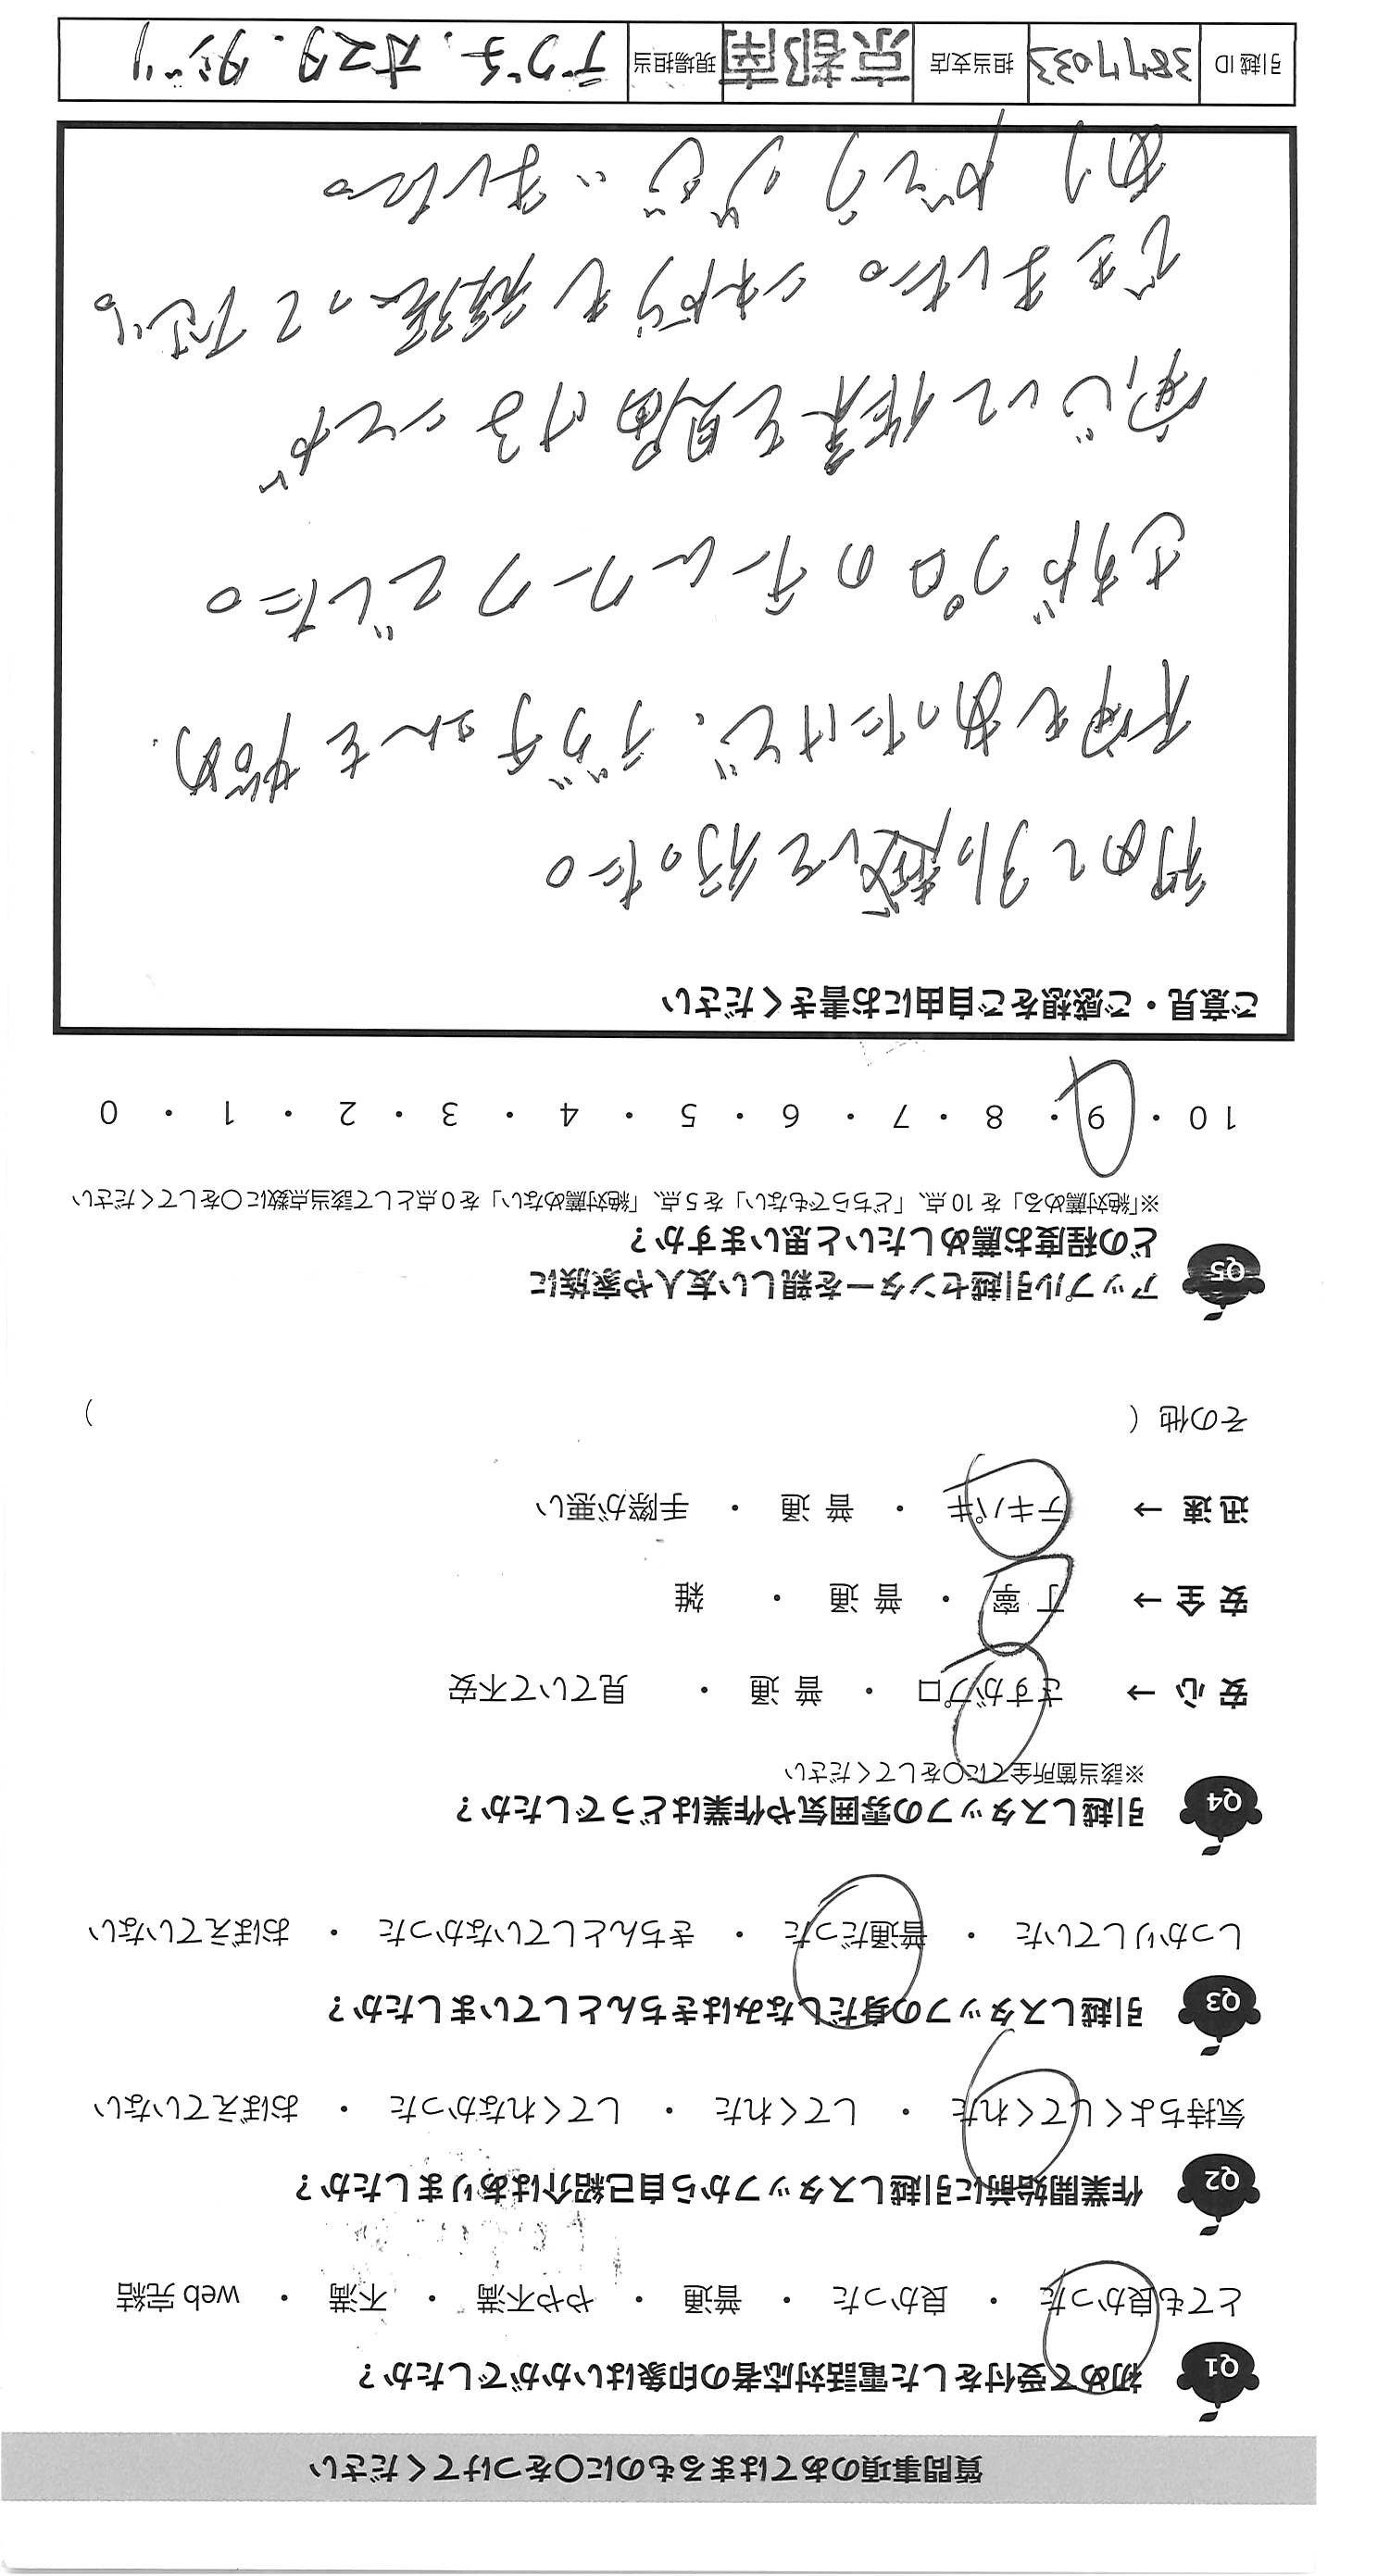 質問事項のあてはまるものに〇をつけてください
Q1 初めて受付をした電話対応者の印象はいかがでしたか？
とても良かった ・ 良かった ・ 普通 ・ やや不満 ・ 不満 ・ web 完結
Q2 作業開始前に引越しスタッフから自己紹介はありましたか？
気持ちよくしてくれた ・ してくれた ・ してくれなかった ・ おぼえていない
Q3 引越しスタッフの身だしなみはきちんとしていましたか？
しっかりしていた ・ 普通だった ・ きちんとしていなかった ・ おぼえていない
Q4 引越しスタッフの雰囲気や作業はどうでしたか？
※該当箇所全てに〇をしてください
安 心 → さすがプロ ・ 普 通 ・ 見ていて不安
安 全 → 丁 寧 ・ 普 通 ・ 雑
迅 速 → テキパキ ・ 普 通 ・ 手際が悪い
その他 ( )
Q5 アップル引越センターを親しい友人や家族に
どの程度お薦めしたいと思いますか？
※「絶対薦める」を 10 点、「どちらでもない」を 5 点、「絶対薦めない」を 0 点として該当点数に〇をしてください
10 ・ 9 ・ 8 ・ 7 ・ 6 ・ 5 ・ 4 ・ 3 ・ 2 ・ 1 ・ 0
ご意見・ご感想をご自由にお書きください
初めて引越しを行った。
不安もあったけど、デグチさんを始め、
さすがプロのチームワークでした。
安心して作業を見届けることが
できました。これからも頑張って下さい。
ありがとうございました。
引越 ID 3877033 担当支店 京都南 現場担当 デグチ、オスタ、タジリ